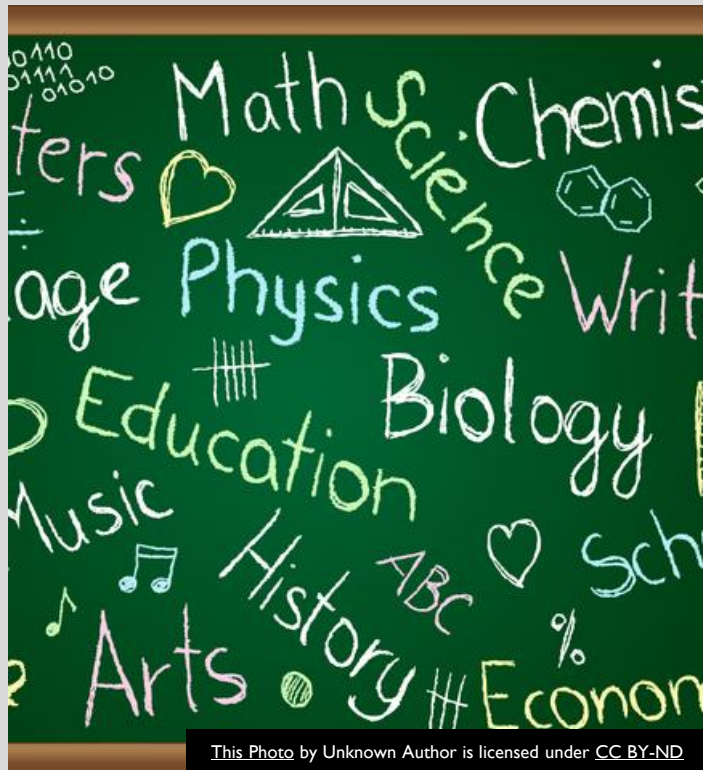 00110
01111
01010
Math
Science
Chemis
ters
age
Physics
Writ
Biology
Education
Music
History
ABC
Sch
%
Arts
Econom
This Photo by Unknown Author is licensed under CC BY-ND